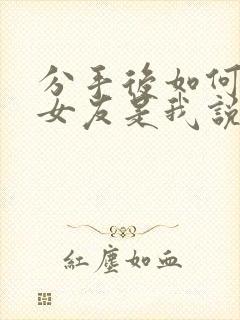 分手後如何
女友是我說
紅塵如血